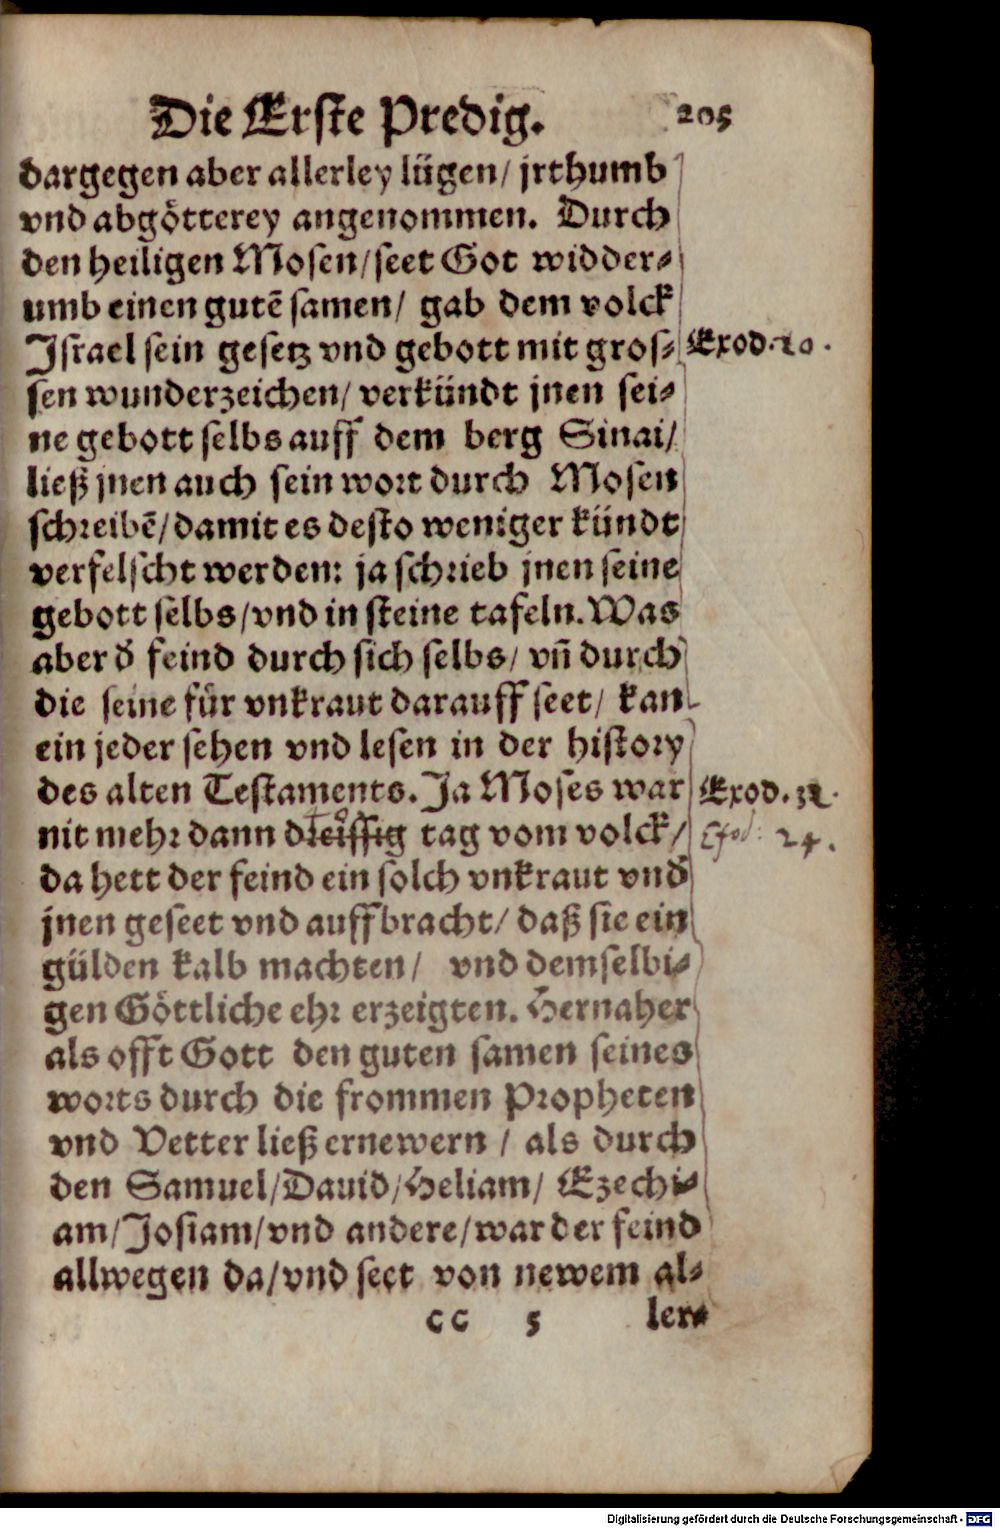 Die Erste Predig. 205
dargegen aber allerley lügen/ jrthumb
vnd abgötterey angenommen. Durch
den heiligen Mosen/seet Got widder⸗
umb einen gutē samen/ gab dem volck
Israel sein gesetz vnd gebott mit gros⸗ Exod.20.
sen wunderzeichen/ verkündt jnen sei⸗
ne gebott selbs auff dem berg Sinai/
ließ jnen auch sein wort durch Mosen
schreibē/damit es desto weniger kündt
verfelscht werden: ja schrieb jnen seine
gebott selbs/vnd in steine tafeln. Was
aber d̕ feind durch sich selbs/ vñ durch
die seine für vnkraut darauff seet/ kan
ein jeder sehen vnd lesen in der history
des alten Testaments. Ja Moses war Exod.32.
nit mehr dann dreissig tag vom volck/ 24.
da hett der feind ein solch vnkraut vnd̕
jnen geseet vnd auffbracht/ daß sie ein
gülden kalb machten/ vnd demselbi⸗
gen Göttliche ehr erzeigten. Hernaher
als offt Gott den guten samen seines
worts durch die frommen Propheten
vnd Vetter ließ ernewern / als durch
den Samuel/Dauid/Heliam/ Ezechi⸗
am/Josiam/vnd andere/war der feind
allwegen da/vnd seet von newem al⸗
cc 5 ler⸗
Digitalisierung gefördert durch die Deutsche Forschungsgemeinschaft - DFG